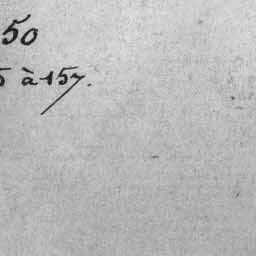 50
5 à 157.